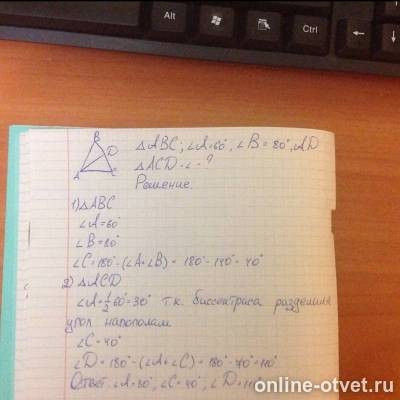 Alt
Ctrl
B
D
A
C
△ABC; ∠A=60°, ∠B=80°, AD
△ACD-∠-?
Решение.
1) △ABC
∠A=60°
∠B=80°
∠C=180°-(∠A+∠B)=180°-140°=40°
2) △ACD
∠A=1/2 60°=30° т.к. биссектриса разделила
угол напополам
∠C=40°
∠D=180°-(∠A+∠C)=180°-70°=110°
Ответ: ∠A=30°, ∠C=40°, ∠D=110°
online-otvet.ru